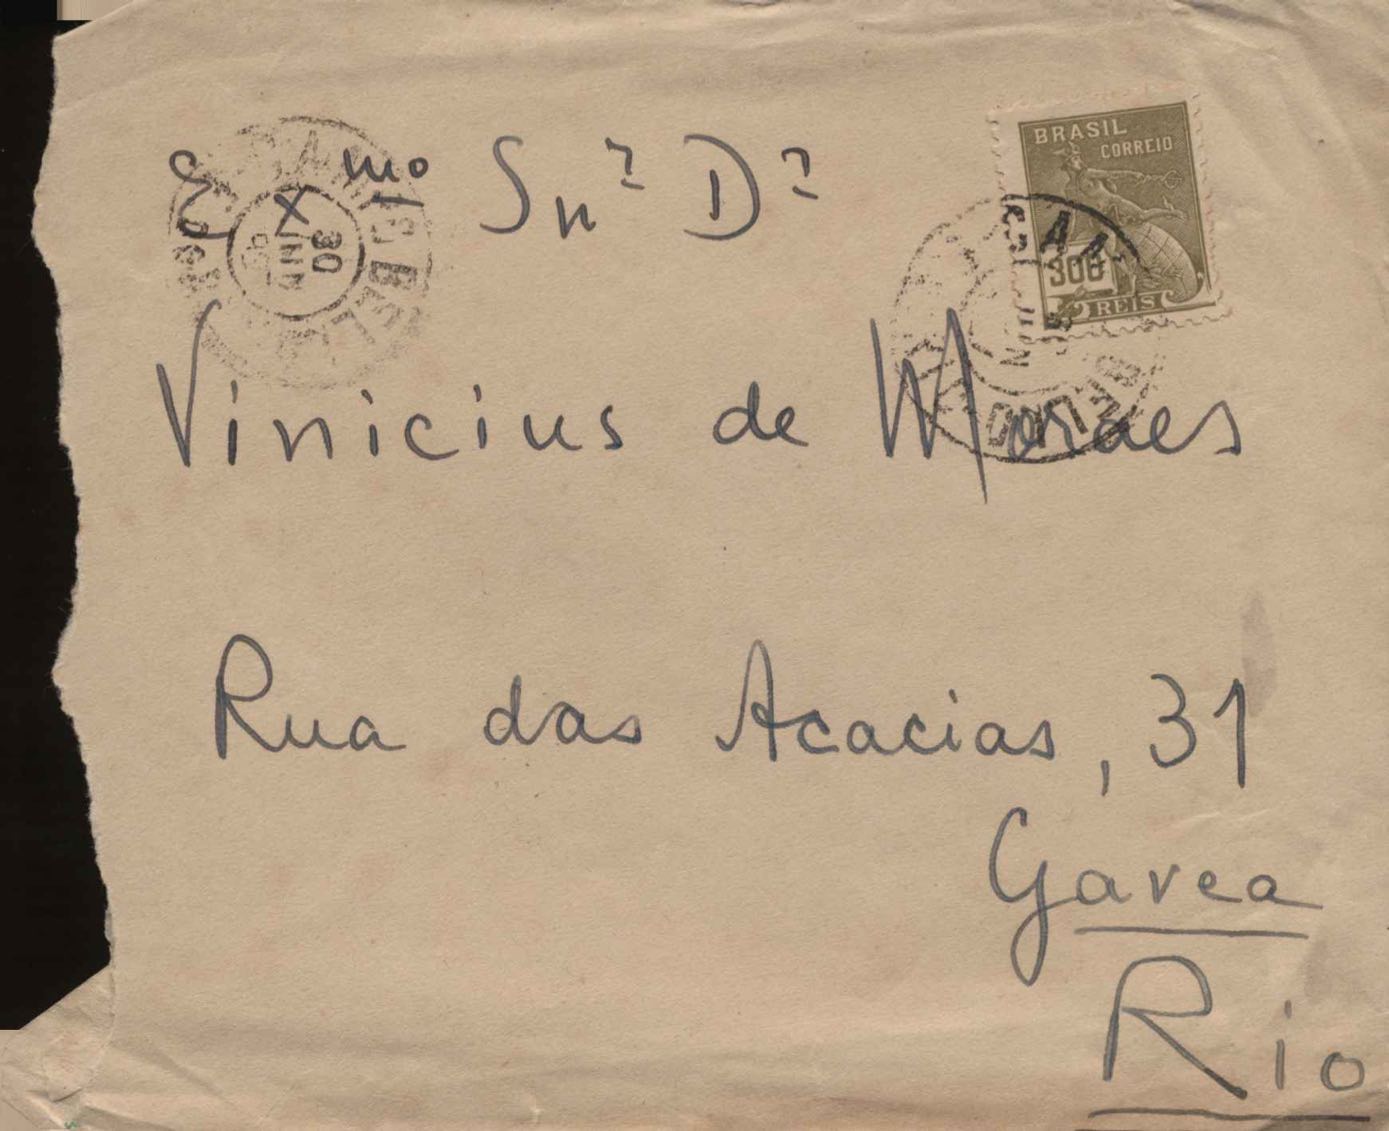 Exmo Snr Dr
Vinicius de Moraes
Rua das Acacias, 31
Gavea
Rio
BRASIL
CORREIO
300
REIS
30